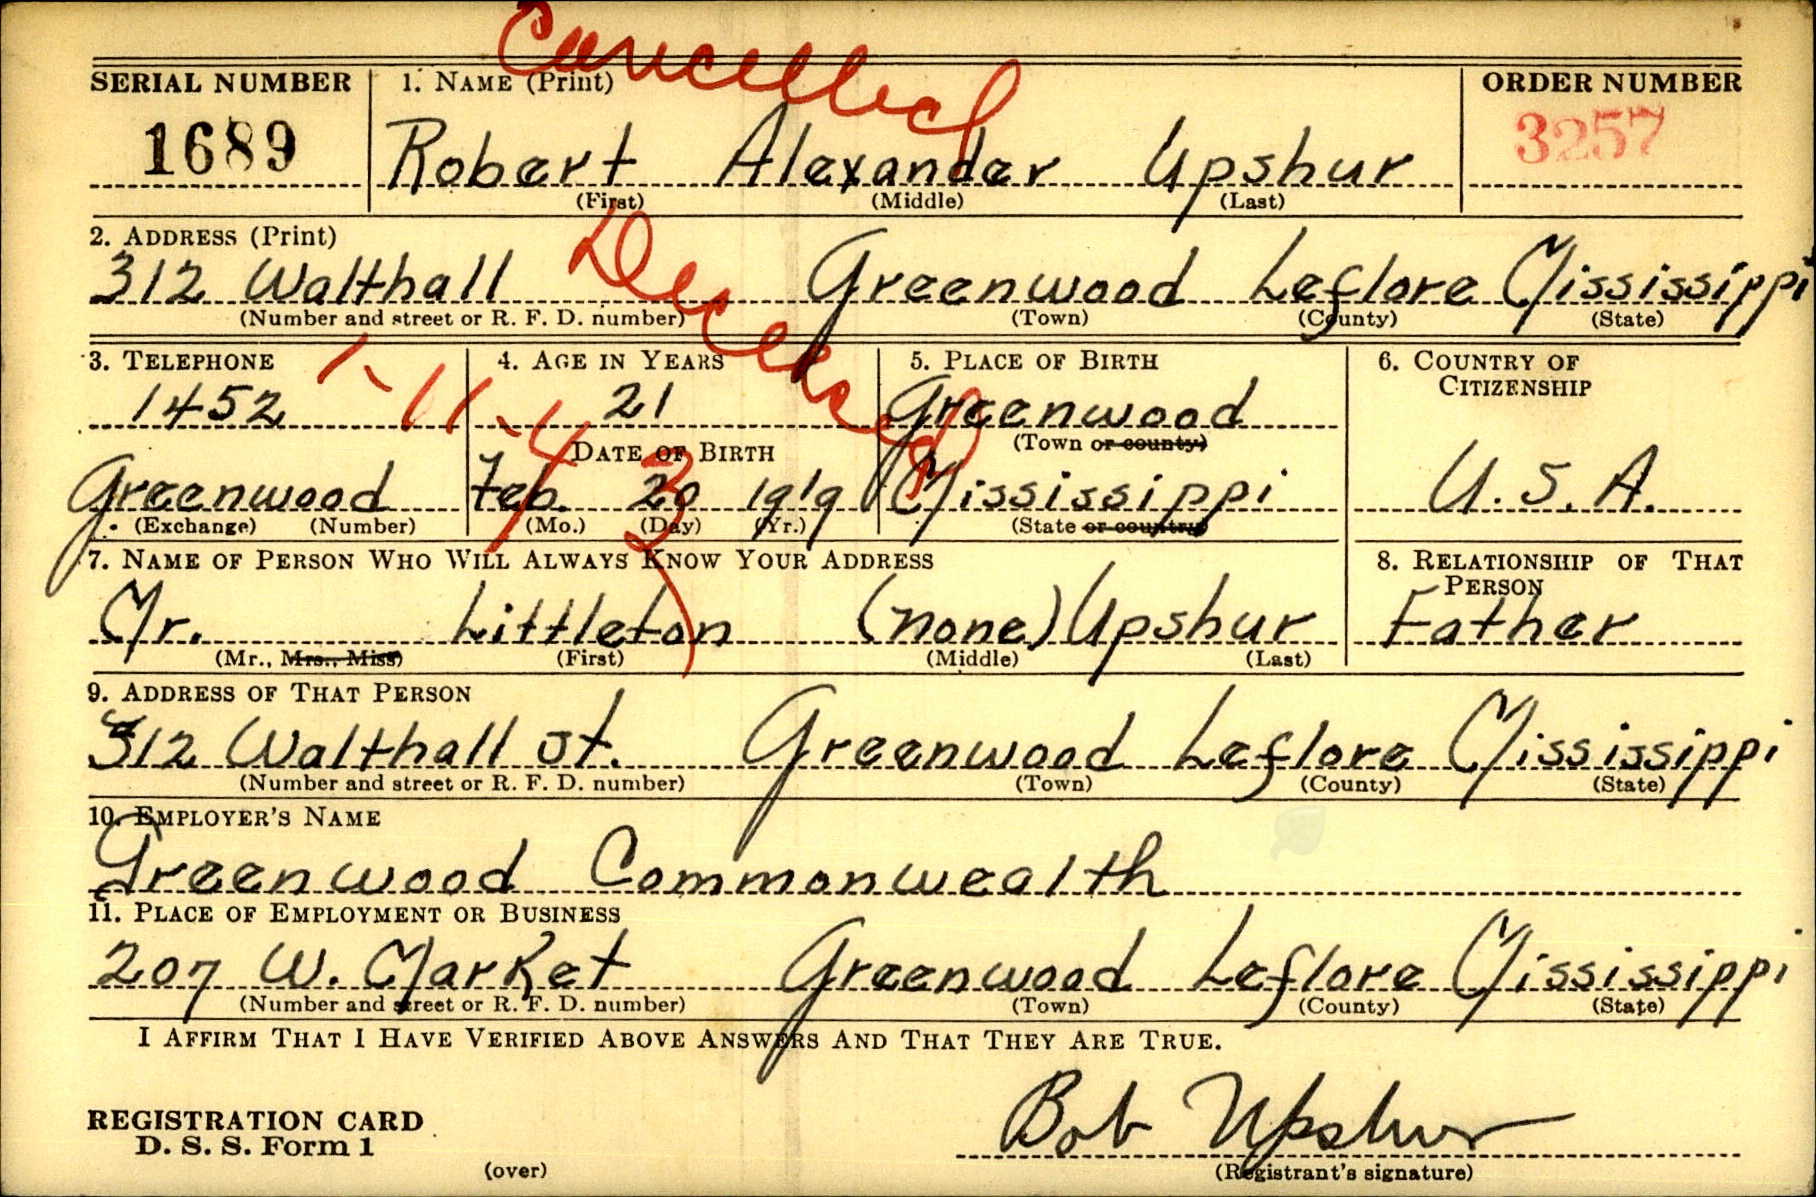 Cancelled
SERIAL NUMBER 1. NAME (Print) ORDER NUMBER
1689 Robert Alexander Upshur 3257
(First) (Middle) (Last)
Deceased
2. ADDRESS (Print)
312 Walthall Greenwood Leflore Mississippi
(Number and street or R. F. D. number) (Town) (County) (State)
3. TELEPHONE 4. AGE IN YEARS 5. PLACE OF BIRTH 6. COUNTRY OF CITIZENSHIP
1-11-43
1452 21 Greenwood
(Town or county)
DATE OF BIRTH
Greenwood Feb. 20 1919 Mississippi U.S.A.
(Exchange) (Number) (Mo.) (Day) (Yr.) (State or country)
7. NAME OF PERSON WHO WILL ALWAYS KNOW YOUR ADDRESS 8. RELATIONSHIP OF THAT PERSON
Mr. Littleton (none) Upshur Father
(Mr., Mrs., Miss) (First) (Middle) (Last)
9. ADDRESS OF THAT PERSON
312 Walthall St. Greenwood Leflore Mississippi
(Number and street or R. F. D. number) (Town) (County) (State)
10. EMPLOYER'S NAME
Greenwood Commonwealth
11. PLACE OF EMPLOYMENT OR BUSINESS
207 W. Market Greenwood Leflore Mississippi
(Number and street or R. F. D. number) (Town) (County) (State)
I AFFIRM THAT I HAVE VERIFIED ABOVE ANSWERS AND THAT THEY ARE TRUE.
Bob Upshur
REGISTRATION CARD
D. S. S. Form 1
(over) (Registrant's signature)